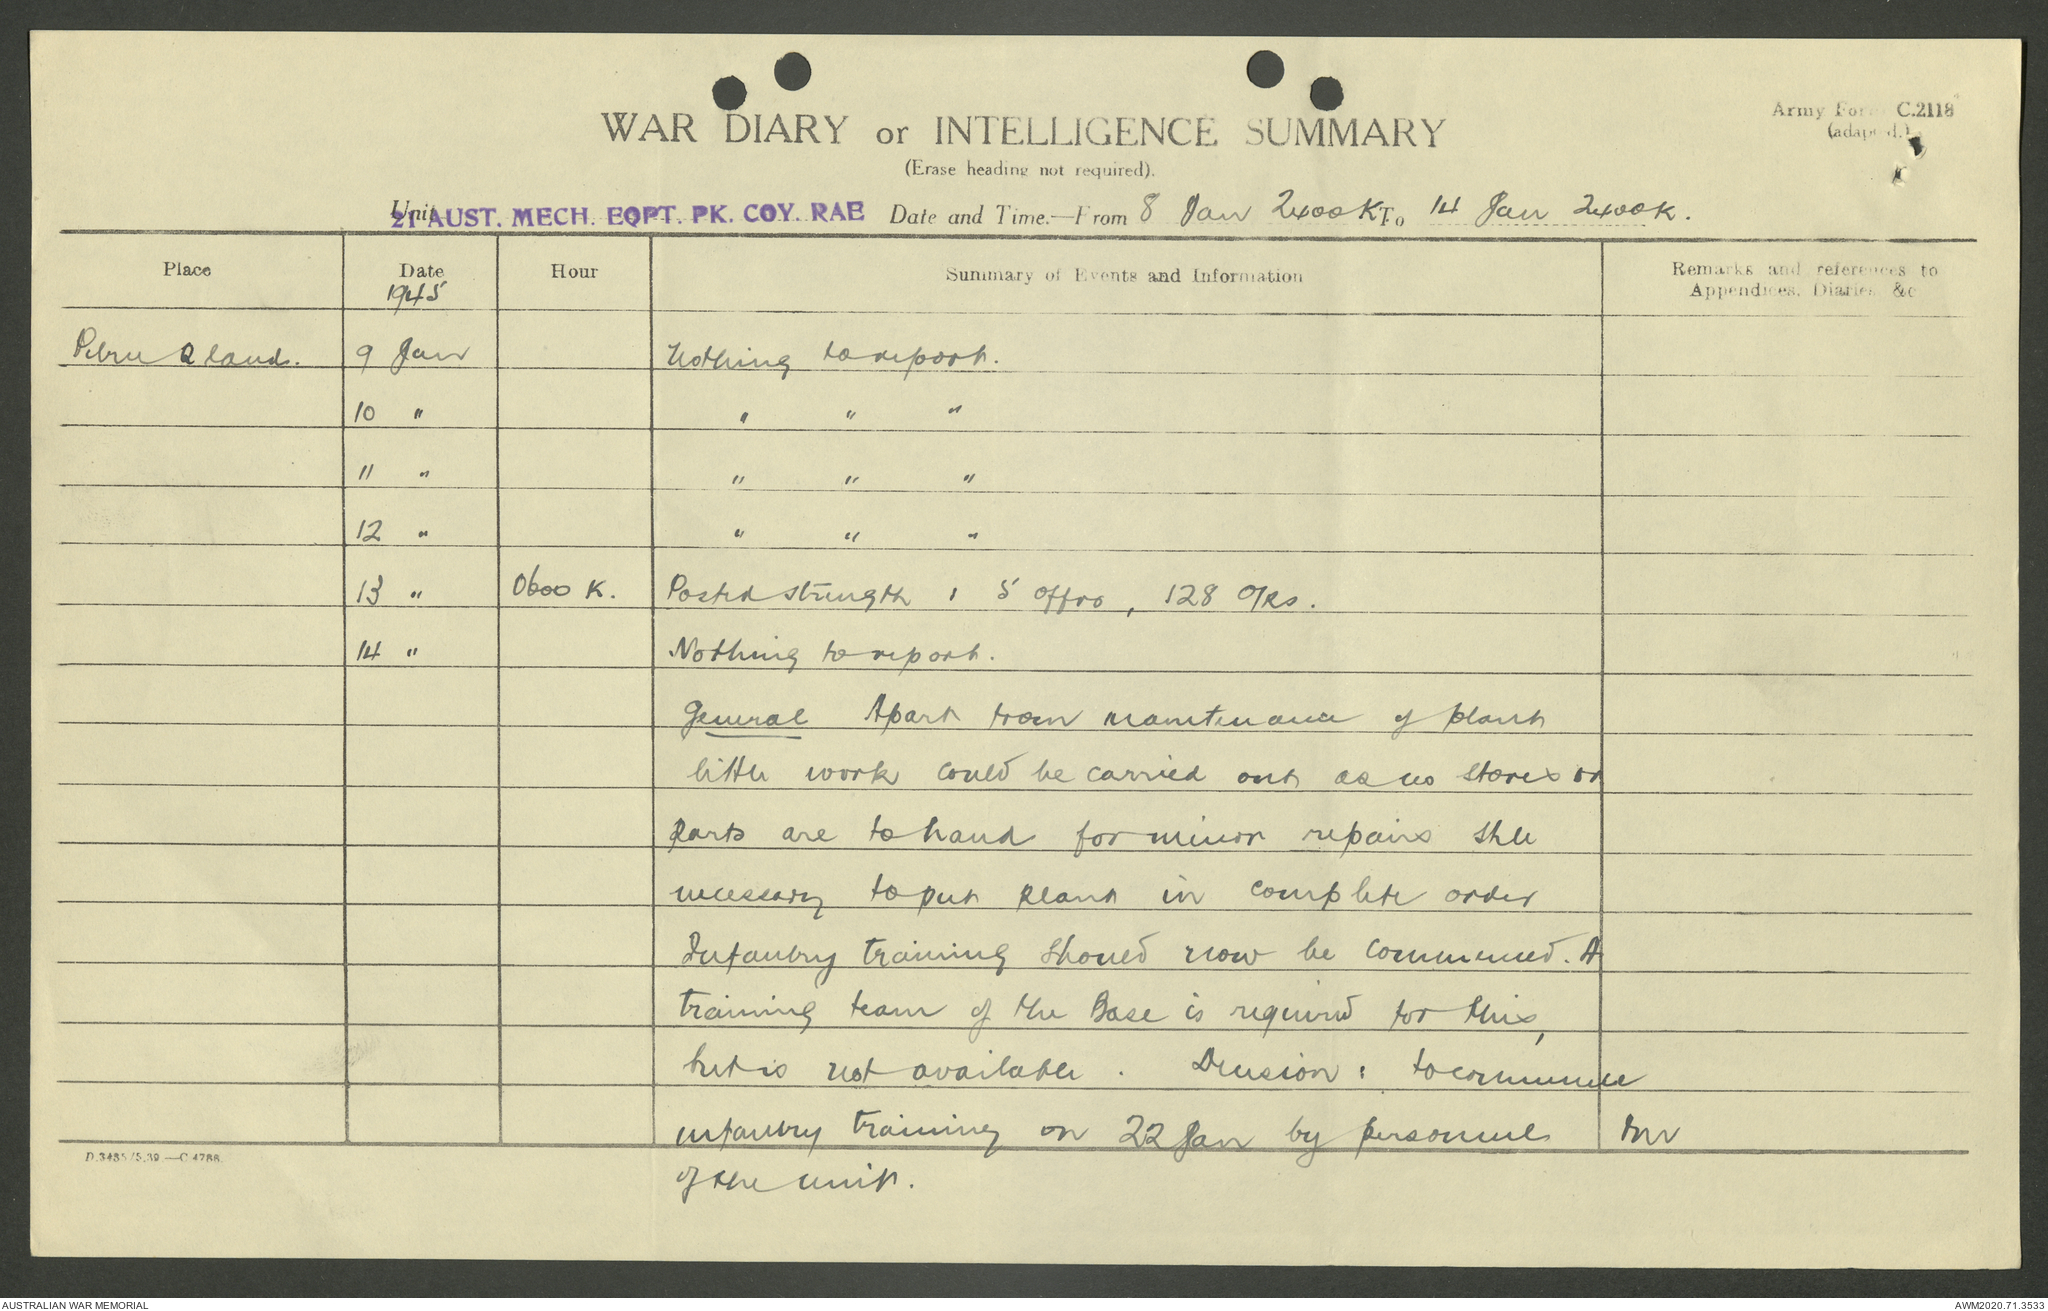 Army Form C.2118
(adapted.)
WAR DIARY or INTELLIGENCE SUMMARY
(Erase heading not required).
Unit 21 AUST. MECH. EQPT. PK. COY. RAE Date and Time.—From 8 Jan 2400K To 14 Jan 2400K.
Place Date Hour Summary of Events and Information Remarks and references to
Appendices, Diaries &c
1945
9 Jan Nothing to report.
10 " " " "
11 " " " "
12 " " " "
13 " 0600 K. Posted strength : 5 offrs, 128 ORs.
14 " Nothing to report.
General Apart from maintenance of plant
little work could be carried out as no stores or
parts are to hand for minor repairs still
necessary to put plant in complete order
Infantry training should now be commenced. A
training team of the Base is required for this,
but is not available. Decision : to commence
infantry training on 22 Jan by personnel
of the unit.
D.3483/5.39.—C.4786.
AUSTRALIAN WAR MEMORIAL AWM2020.71.3533